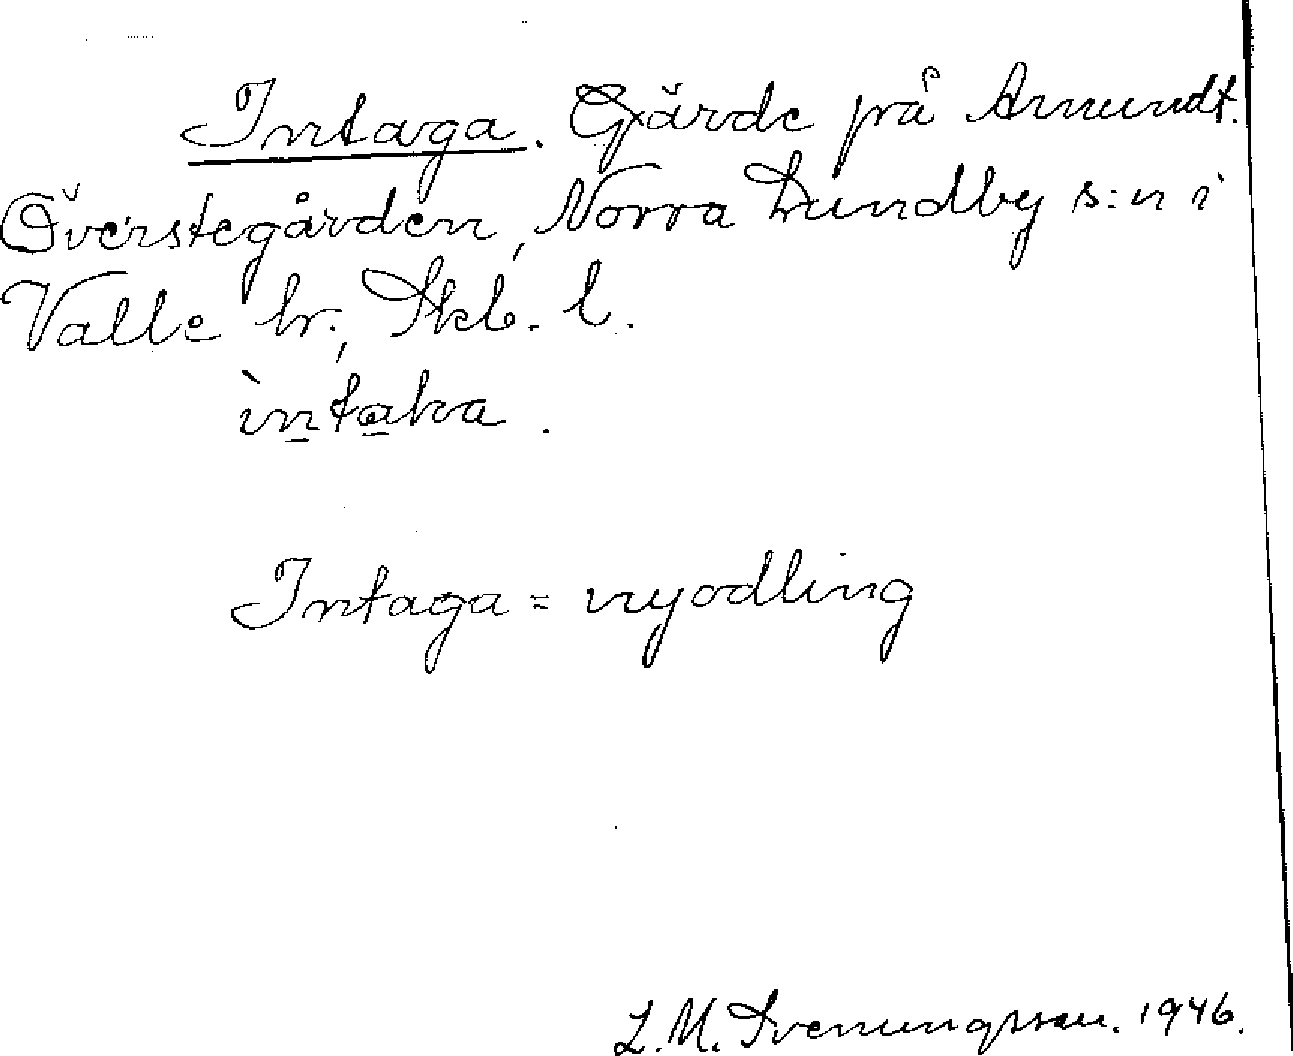 Intaga. Gärde på Amundt.
Överstegården, Norra Lundby s:n i
Valle hr., Skb. l.
ìntaka.
Intaga = nyodling
L. M. Svenungsson. 1946.